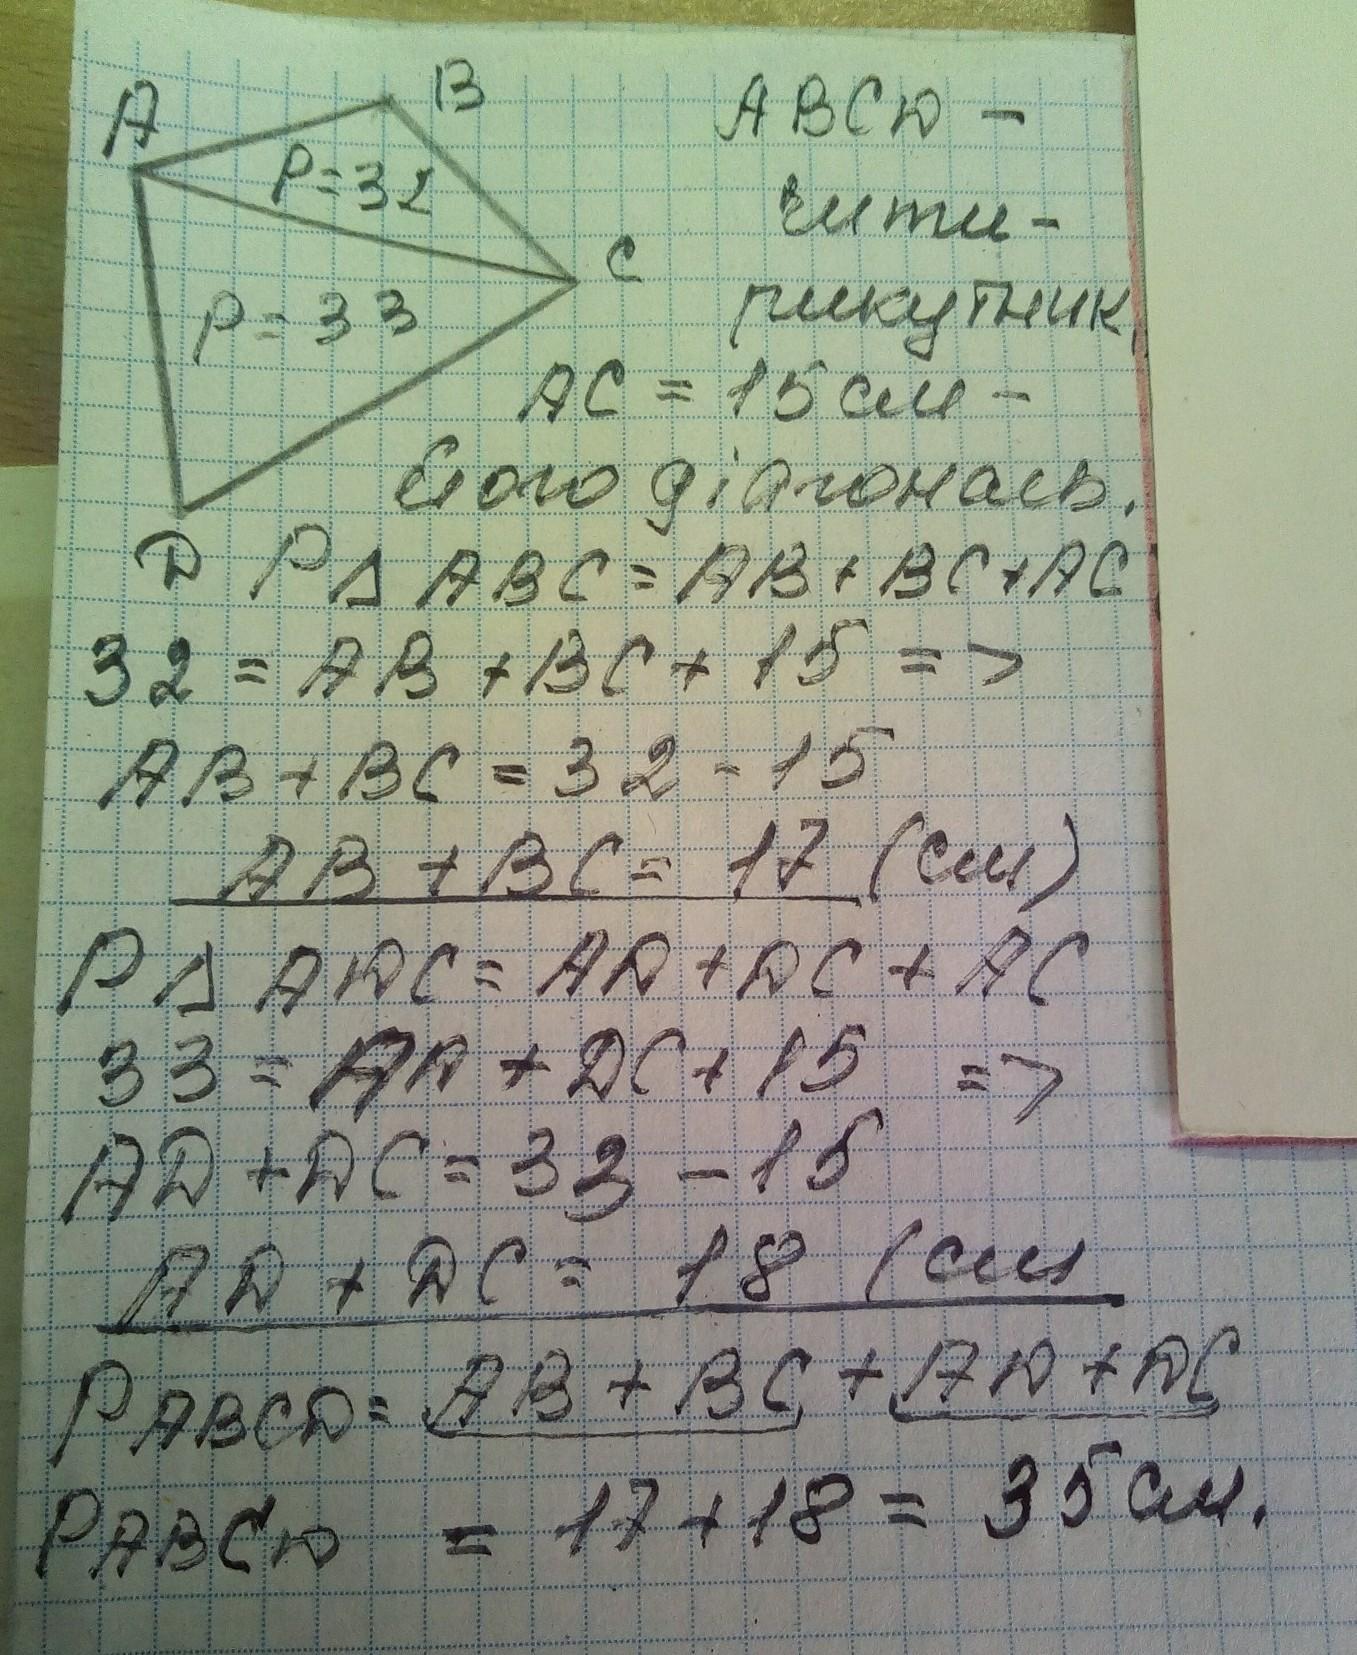 A B
P=32
C
P=33
D
ABCD -
чити-
рикутник,
AC = 15 см -
його діагональ.
P△ ABC = AB + BC + AC
32 = AB + BC + 15 =>
AB + BC = 32 - 15
AB + BC = 17 (см)
P△ ADC = AD + DC + AC
33 = AD + DC + 15 =>
AD + DC = 33 - 15
AD + DC = 18 (см
PABCD = AB + BC + AD + DC
PABCD = 17 + 18 = 35 см.